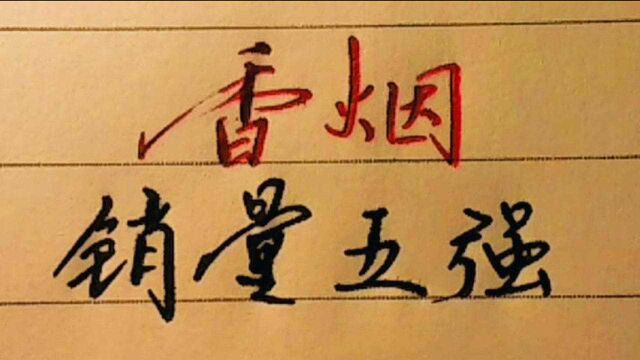 香烟
销量五强